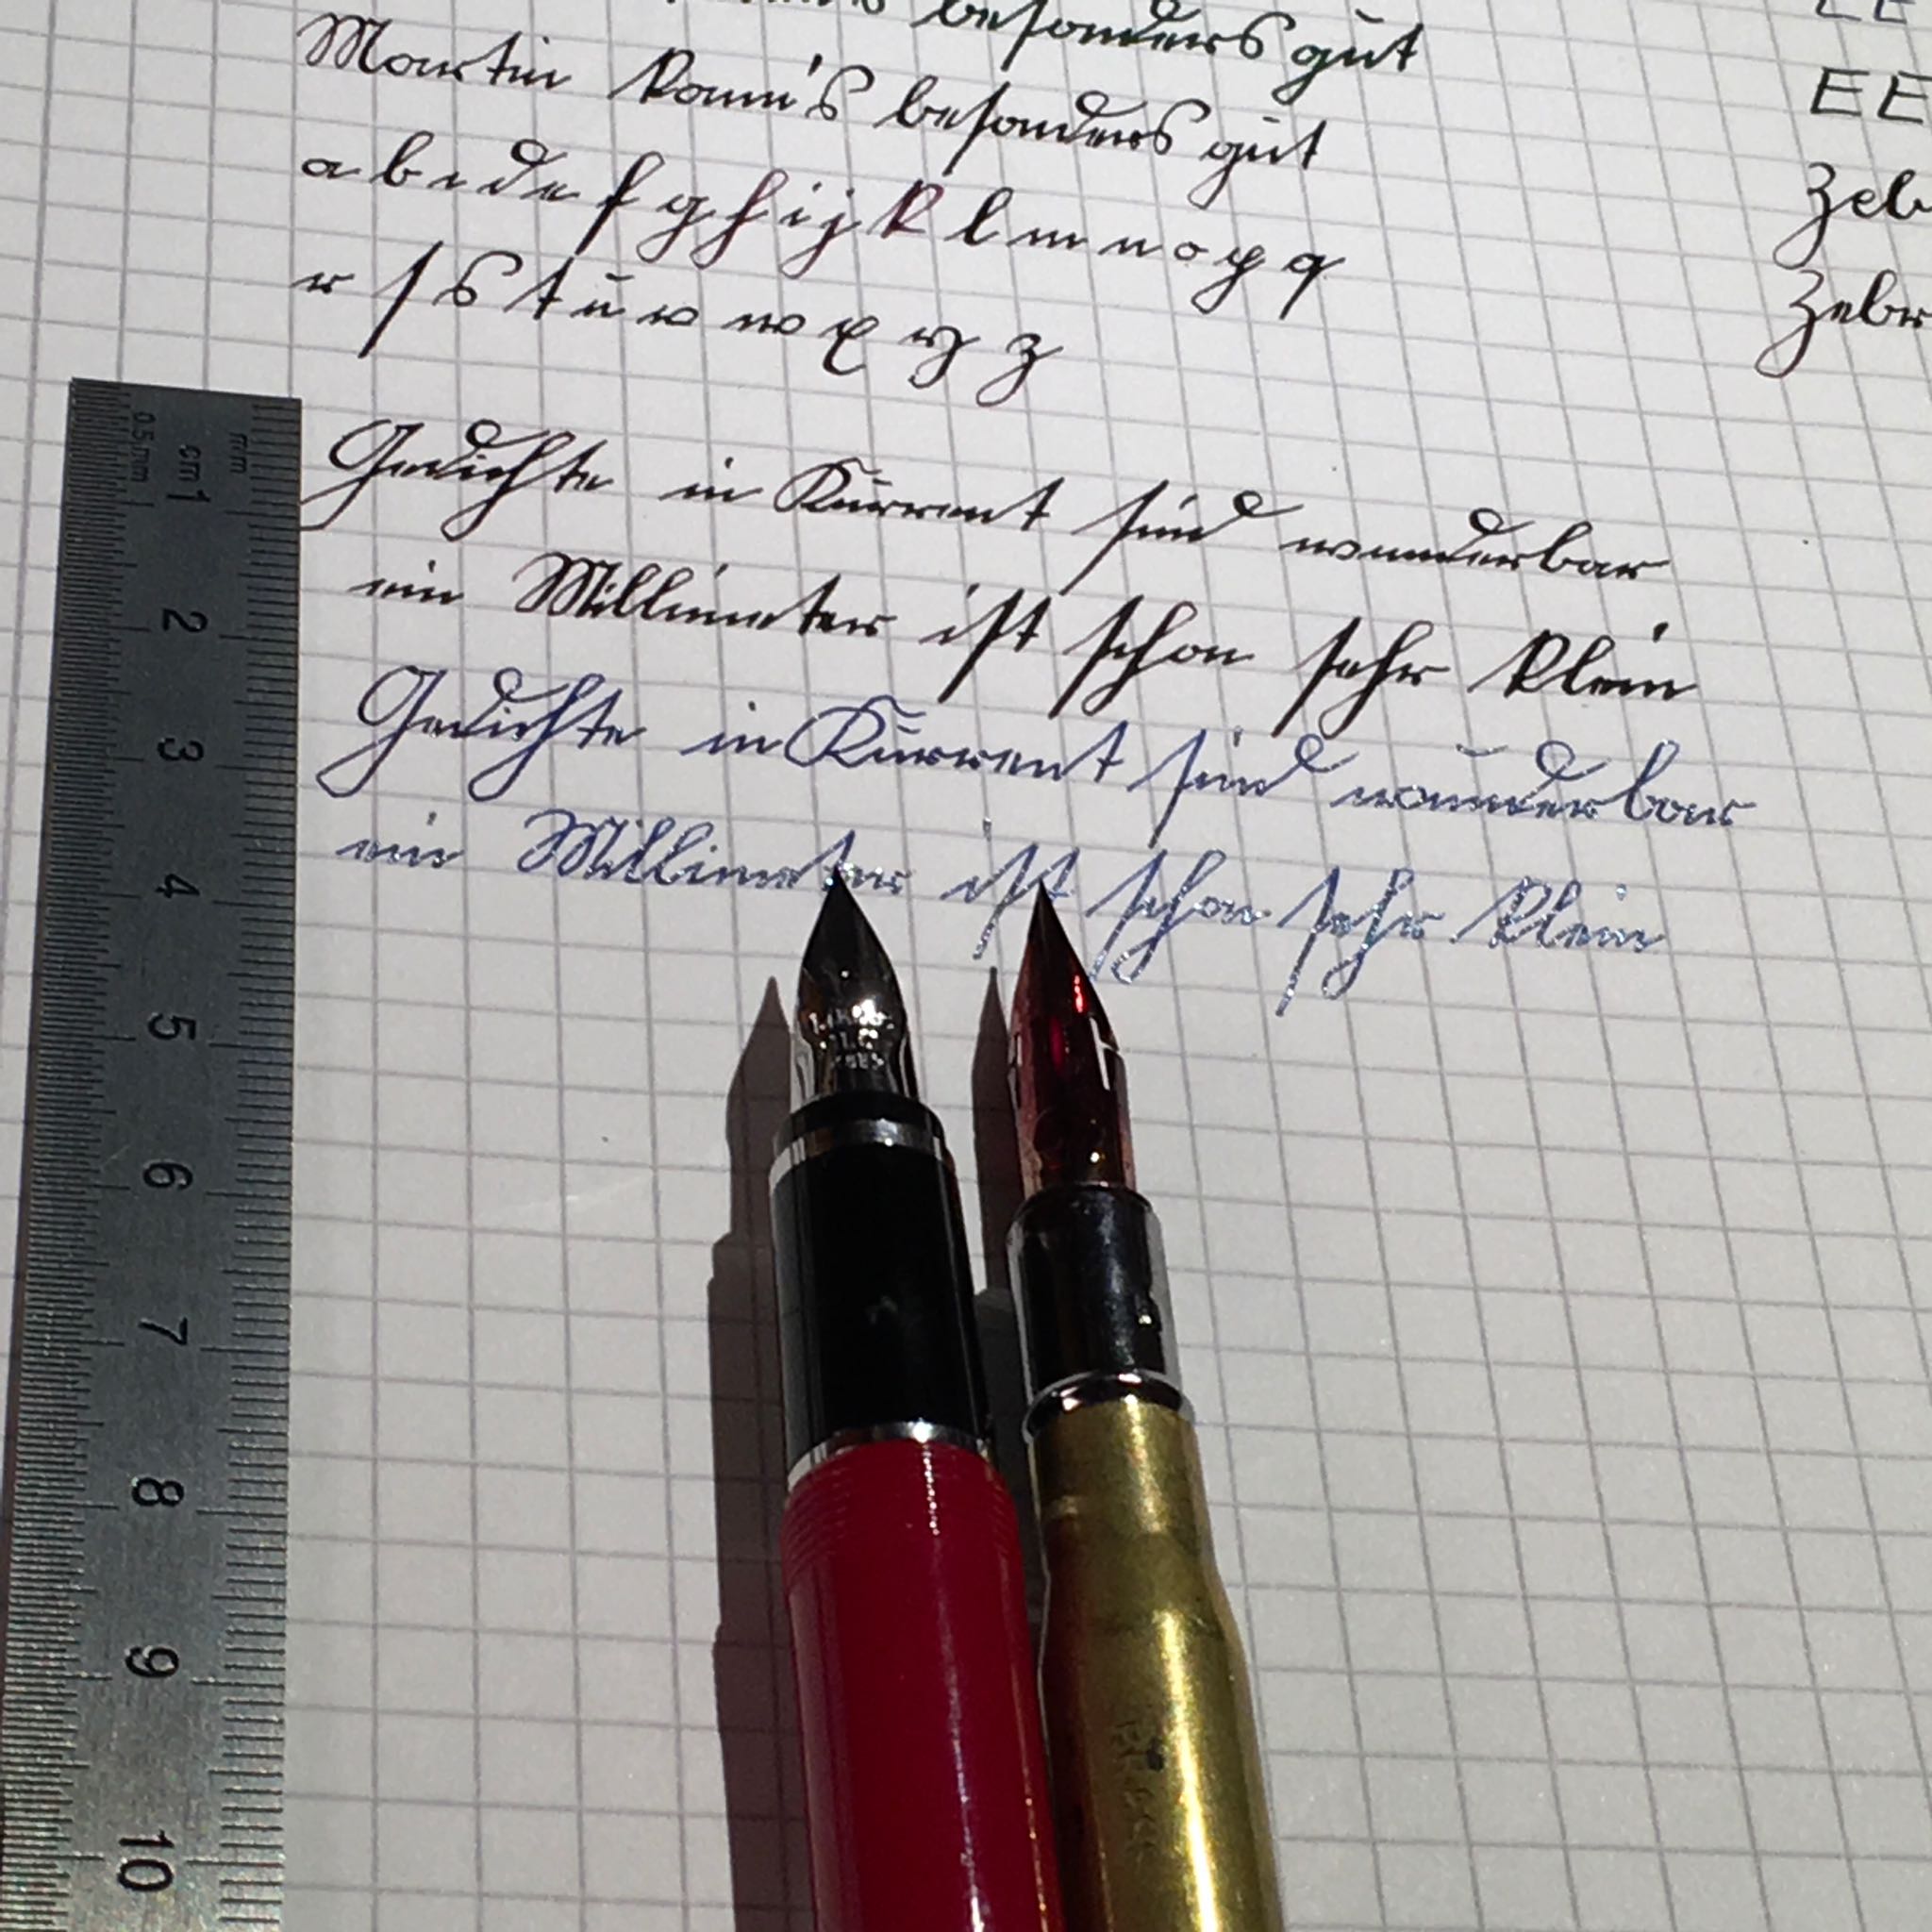 besonders gut
Martin kann's besonders gut
a b c d e f g h i j k l m n o p q
r ſ s t u v w x y z
Gedichte in Kurrent sind wunderbar
ein Millimeter ist schon sehr klein
Gedichte in Kurrent sind wunderbar
ein Millimeter ist schon sehr klein
EE
Zeb
Zebr
0.5mm
cm
mm
1
2
3
4
5
6
7
8
9
10